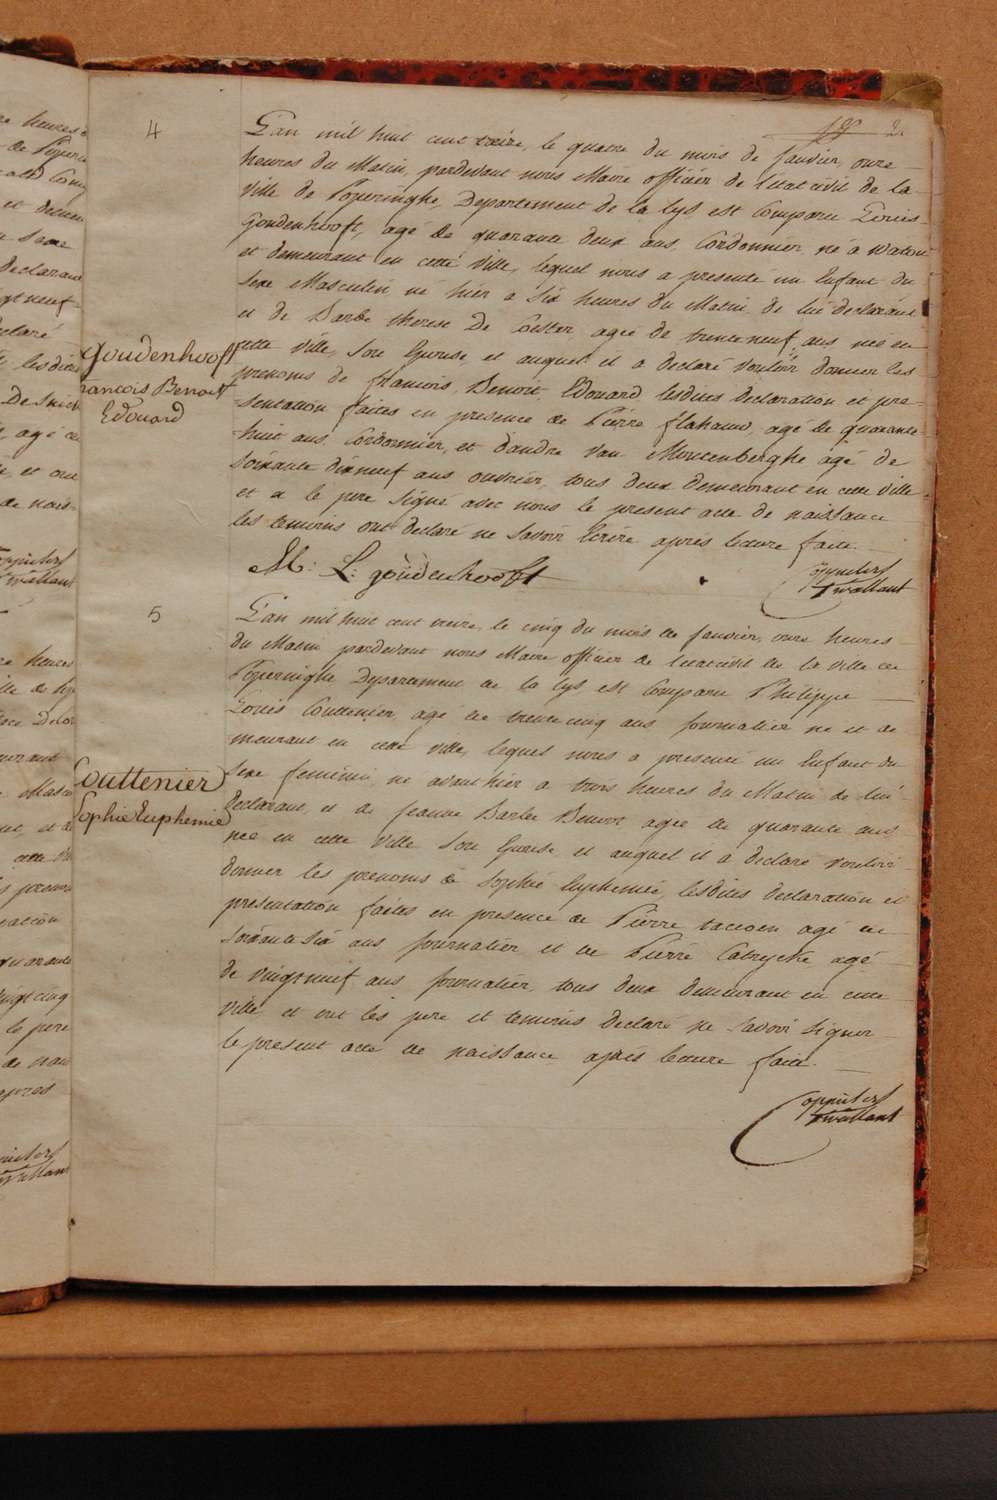 2.
4
L'an mil huit cent treize, le quatre du mois de Janvier, onze
heures du Matin, pardevant nous Maire officier de l'etat civil de la
Ville de Poperinghe, Departement de la Lys est Comparu Louis
Goudenhooft, agé de quarante deux ans, Cordonnier, né à Watou
et demeurant en cette Ville, lequel nous a presenté un Enfant du
sexe Masculin né hier a Six heures du Matin, de lui declarant
et de Barbe therese De Coster, agée de trente neuf ans née en
cette Ville, Son Epouse, et auquel il a declaré vouloir donner les
prenoms de francois, Benoit, Edouard lesdites declaration et pre-
sentation faites en presence de Pierre flahauw, agé de quarante
huit ans, Cordonnier, et d'andre Van Mouccenberghe agé de
soixante dixneuf ans ouvrier, tous deux demeurant en cette ville
et a le pere signé avec nous le present acte de naissance
les temoins ont declaré ne savoir Ecrire après lecture faite
goudenhooft
francois Benoit
Edouard
L: goudenhooft
5
L'an mil huit cent treize, le cinq du mois de Janvier, onze heures
du Matin pardevant nous Maire officier de l'etat civil de la ville de
Poperinghe Departement de la Lys est Comparu Philippe
Louis Couttenier, agé de trente cinq ans journalier né et de
meurant en cette ville, lequel nous a presenté un Enfant du
sexe feminin, né avant hier a trois heures du Matin de lui
Declarant, et de Jeanne Barbe Benoot agée de quarante ans
née en cette Ville son Epouse et auquel il a declaré vouloir
donner les prenoms de Sophie Euphemie, lesdites declaration et
presentation faites en presence de Pierre agé de
soixante six ans journalier et de Pierre Catryche agé
de vingt neuf ans journalier, tous deux demeurant en cette
Ville et ont les pere et temoins declaré ne savoir signer
le present acte de naissance après lecture faite.
Couttenier
Sophie Euphemie